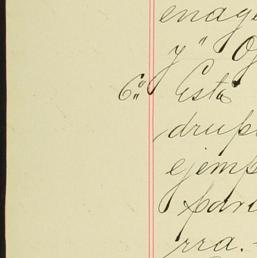 enag
y" O
6" Esta
drup
ejemp
para
rra.-